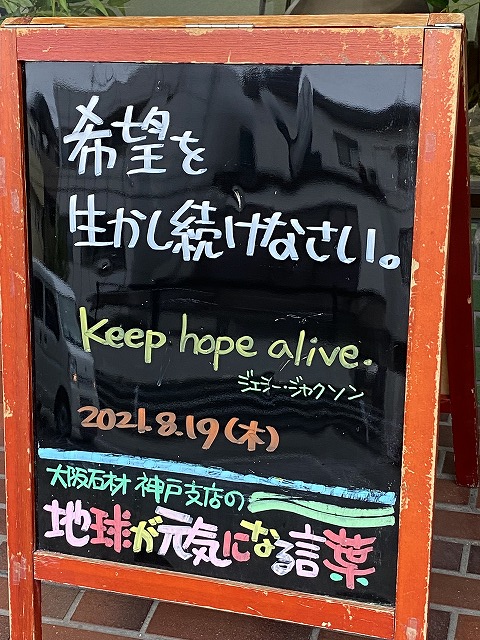 希望を
生かし続けなさい。
Keep hope alive.
ジェシー・ジャクソン
2021.8.19(木)
大阪石材 神戸支店の
地球が元気になる言葉